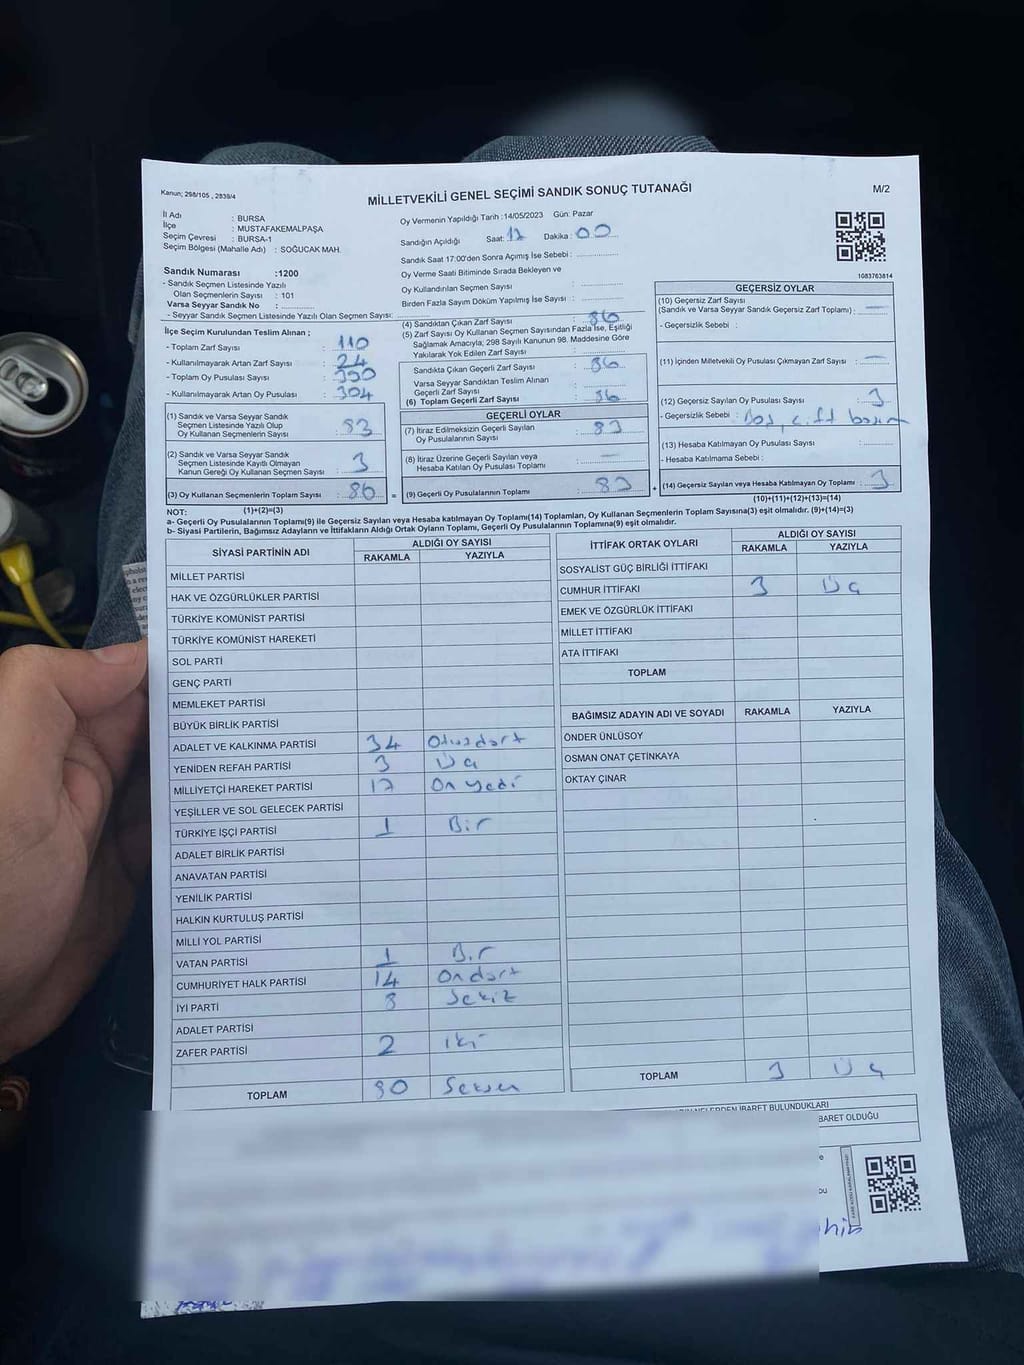 Kanun; 298/105 , 2839/4
MİLLETVEKİLİ GENEL SEÇİMİ SANDIK SONUÇ TUTANAĞI
M/2
İl Adı : BURSA
İlçe : MUSTAFAKEMALPAŞA
Seçim Çevresi : BURSA-1
Seçim Bölgesi (Mahalle Adı) : SOĞUCAK MAH.
Sandık Numarası :1200
- Sandık Seçmen Listesinde Yazılı
Olan Seçmenlerin Sayısı : 101
Varsa Seyyar Sandık No :
- Seyyar Sandık Seçmen Listesinde Yazılı Olan Seçmen Sayısı:
Oy Vermenin Yapıldığı Tarih :14/05/2023 Gün: Pazar
Sandığın Açıldığı Saat: 17 Dakika : 00
Sandık Saat 17:00'den Sonra Açımış İse Sebebi :
Oy Verme Saati Bitiminde Sırada Bekleyen ve
Oy Kullandırılan Seçmen Sayısı :
Birden Fazla Sayım Döküm Yapılmış İse Sayısı :
1083763814
İlçe Seçim Kurulundan Teslim Alınan ;
- Toplam Zarf Sayısı : 110
- Kullanılmayarak Artan Zarf Sayısı : 24
- Toplam Oy Pusulası Sayısı : 390
- Kullanılmayarak Artan Oy Pusulası : 304
(1) Sandık ve Varsa Seyyar Sandık
Seçmen Listesinde Yazılı Olup
Oy Kullanan Seçmenlerin Sayısı : 83
(2) Sandık ve Varsa Seyyar Sandık
Seçmen Listesinde Kayıtlı Olmayan
Kanun Gereği Oy Kullanan Seçmen Sayısı : 3
(3) Oy Kullanan Seçmenlerin Toplam Sayısı : 86 =
(4) Sandıktan Çıkan Zarf Sayısı : 86
(5) Zarf Sayısı Oy Kullanan Seçmen Sayısından Fazla İse, Eşitliği
Sağlamak Amacıyla, 298 Sayılı Kanunun 98. Maddesine Göre
Yakılarak Yok Edilen Zarf Sayısı :
Sandıkta Çıkan Geçerli Zarf Sayısı : 86
Varsa Seyyar Sandıktan Teslim Alınan
Geçerli Zarf Sayısı :
(6) Toplam Geçerli Zarf Sayısı : 86
GEÇERLİ OYLAR
(7) İtiraz Edilmeksizin Geçerli Sayılan
Oy Pusulalarının Sayısı : 83
(8) İtiraz Üzerine Geçerli Sayılan veya
Hesaba Katılan Oy Pusulası Toplamı : —
(9) Geçerli Oy Pusulalarının Toplamı : 83 +
GEÇERSİZ OYLAR
(10) Geçersiz Zarf Sayısı
(Sandık ve Varsa Seyyar Sandık Geçersiz Zarf Toplamı) : —
- Geçersizlik Sebebi :
(11) İçinden Milletvekili Oy Pusulası Çıkmayan Zarf Sayısı : —
(12) Geçersiz Sayılan Oy Pusulası Sayısı : 3
- Geçersizlik Sebebi : Boş, çift basım
(13) Hesaba Katılmayan Oy Pusulası Sayısı :
- Hesaba Katılmama Sebebi :
(14) Geçersiz Sayılan veya Hesaba Katılmayan Oy Toplamı : 3
NOT: (1)+(2)=(3)
(10)+(11)+(12)+(13)=(14)
a- Geçerli Oy Pusulaları Toplamı(9) ile Geçersiz Sayılan veya Hesaba katılmayan Oy Toplamı(14) Toplamları, Oy Kullanan Seçmenlerin Toplam Sayısına(3) eşit olmalıdır. (9)+(14)=(3)
b- Siyasi Partilerin, Bağımsız Adayların ve İttifakların Aldığı Ortak Oyların Toplamı, Geçerli Oy Pusulalarının Toplamına(9) eşit olmalıdır.
SİYASİ PARTİNİN ADI ALDIĞI OY SAYISI
RAKAMLA YAZIYLA
MİLLET PARTİSİ
HAK VE ÖZGÜRLÜKLER PARTİSİ
TÜRKİYE KOMÜNİST PARTİSİ
TÜRKİYE KOMÜNİST HAREKETİ
SOL PARTİ
GENÇ PARTİ
MEMLEKET PARTİSİ
BÜYÜK BİRLİK PARTİSİ
ADALET VE KALKINMA PARTİSİ 34 Otuzdört
YENİDEN REFAH PARTİSİ 3 Üç
MİLLİYETÇİ HAREKET PARTİSİ 17 On yedi
YEŞİLLER VE SOL GELECEK PARTİSİ
TÜRKİYE İŞÇİ PARTİSİ 1 Bir
ADALET BİRLİK PARTİSİ
ANAVATAN PARTİSİ
YENİLİK PARTİSİ
HALKIN KURTULUŞ PARTİSİ
MİLLİ YOL PARTİSİ
VATAN PARTİSİ 1 Bir
CUMHURİYET HALK PARTİSİ 14 Ondört
İYİ PARTİ 8 Sekiz
ADALET PARTİSİ
ZAFER PARTİSİ 2 İki
TOPLAM 80 Seksen
İTTİFAK ORTAK OYLARI ALDIĞI OY SAYISI
RAKAMLA YAZIYLA
SOSYALİST GÜÇ BİRLİĞİ İTTİFAKI
CUMHUR İTTİFAKI 3 Üç
EMEK VE ÖZGÜRLÜK İTTİFAKI
MİLLET İTTİFAKI
ATA İTTİFAKI
TOPLAM
BAĞIMSIZ ADAYIN ADI VE SOYADI RAKAMLA YAZIYLA
ÖNDER ÜNLÜSOY
OSMAN ONAT ÇETİNKAYA
OKTAY ÇINAR
TOPLAM 3 Üç
NELERDEN İBARET BULUNDUKLARI
BARET OLDUĞU